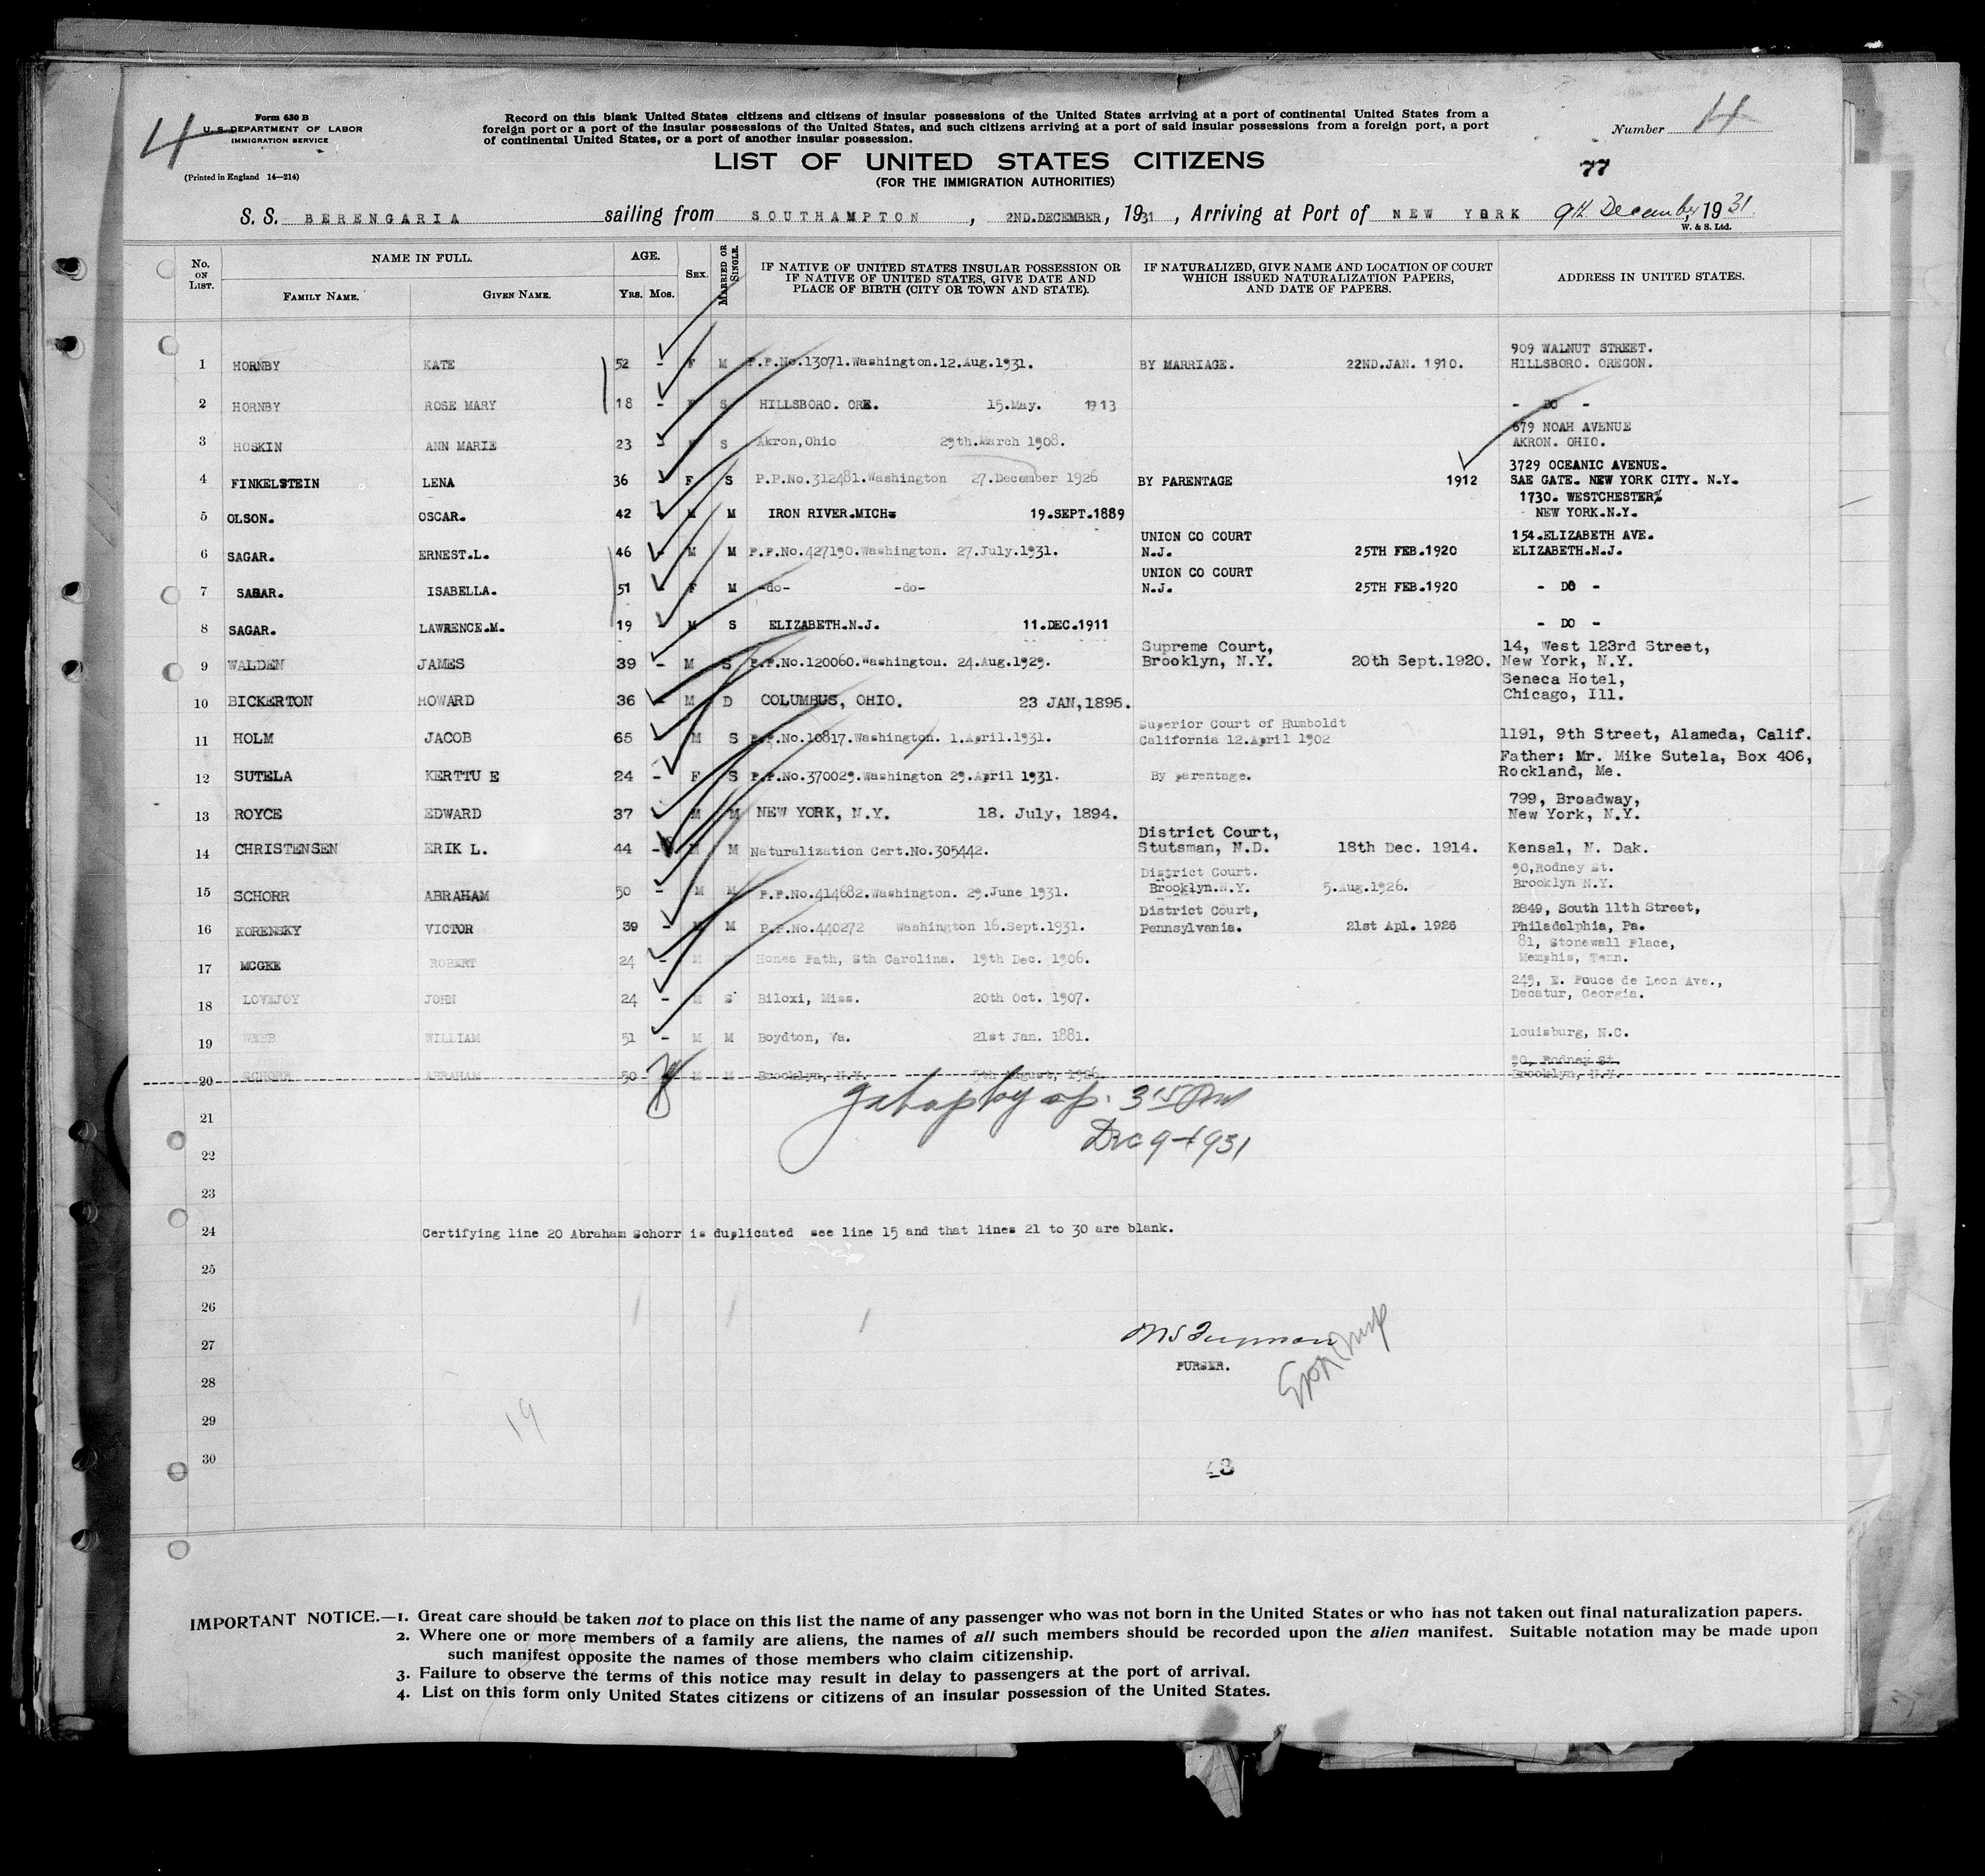 Form 630 B
U. S. DEPARTMENT OF LABOR
IMMIGRATION SERVICE
(Printed in England 14—214)
4
Record on this blank United States citizens and citizens of insular possessions of the United States arriving at a port of continental United States from a
foreign port or a port of the insular possessions of the United States, and such citizens arriving at a port of said insular possessions from a foreign port, a port
of continental United States, or a port of another insular possession.
Number 14
LIST OF UNITED STATES CITIZENS
(FOR THE IMMIGRATION AUTHORITIES)
77
S. S. BERENGARIA sailing from SOUTHAMPTON, 2ND.DECEMBER, 1931, Arriving at Port of NEW YORK 9th December, 1931.
W. & S. Ltd.
No. ON LIST. NAME IN FULL. FAMILY NAME. GIVEN NAME. AGE. YRS. MOS. SEX. MARRIED OR SINGLE. IF NATIVE OF UNITED STATES INSULAR POSSESSION OR IF NATIVE OF UNITED STATES, GIVE DATE AND PLACE OF BIRTH (CITY OR TOWN AND STATE). IF NATURALIZED, GIVE NAME AND LOCATION OF COURT WHICH ISSUED NATURALIZATION PAPERS, AND DATE OF PAPERS. ADDRESS IN UNITED STATES.
1 HORNBY KATE 52 - F M P.P.No.13071.Washington.12.Aug.1931. BY MARRIAGE. 22ND.JAN. 1910. 909 WALNUT STREET. HILLSBORO. OREGON.
2 HORNBY ROSE MARY 18 - F S HILLSBORO. ORE. 15.May. 1913 - DO -
3 HOSKIN ANN MARIE 23 - F S Akron,Ohio 29th.March 1908. 679 NOAH AVENUE AKRON. OHIO.
4 FINKELSTEIN LENA 36 F S P.P.No.312481.Washington 27.December 1926 BY PARENTAGE 1912 3729 OCEANIC AVENUE. SAE GATE. NEW YORK CITY. N.Y.
5 OLSON. OSCAR. 42 M M IRON RIVER.MICH. 19.SEPT.1889 1730. WESTCHESTER NEW YORK.N.Y.
6 SAGAR. ERNEST.L. 46 - M M P.P.No.427190.Washington. 27.July.1931. UNION CO COURT N.J. 25TH FEB.1920 154.ELIZABETH AVE. ELIZABETH.N.J.
7 SAGAR. ISABELLA. 51 - F M -do- -do- UNION CO COURT N.J. 25TH FEB.1920 - DO -
8 SAGAR. LAWRENCE.M. 19 M S ELIZABETH.N.J. 11.DEC.1911 - DO -
9 WALDEN JAMES 39 - M S P.P.No.120060.Washington. 24.Aug.1929. Supreme Court, Brooklyn, N.Y. 20th Sept.1920. 14, West 123rd Street, New York, N.Y.
10 BICKERTON HOWARD 36 - M D COLUMBUS, OHIO. 23 JAN,1895. Seneca Hotel, Chicago, Ill.
11 HOLM JACOB 65 M S P.P.No.10817.Washington. 1.April.1931. Superior Court of Humboldt California 12.April 1902 1191, 9th Street, Alameda, Calif.
12 SUTELA KERTTU E 24 - F S P.P.No.370029.Washington 29.April 1931. By parentage. Father: Mr. Mike Sutela, Box 406, Rockland, Me.
13 ROYCE EDWARD 37 M M NEW YORK, N.Y. 18. July, 1894. 799, Broadway, New York, N.Y.
14 CHRISTENSEN ERIK L. 44 - M M Naturalization Cert.No.305442. District Court, Stutsman, N.D. 18th Dec. 1914. Kensal, N. Dak.
15 SCHORR ABRAHAM 50 - M M P.P.No.414682.Washington. 29.June 1931. District Court. Brooklyn.N.Y. 5.Aug.1926. 90,Rodney St. Brooklyn N.Y.
16 KORENSKY VICTOR 39 - M M P.P.No.440272 Washington 16.Sept.1931. District Court, Pennsylvania. 21st Apl. 1926 2849, South 11th Street, Philadelphia, Pa.
17 MCGEE ROBERT 24 - M S Honea Path, Sth Carolina. 19th Dec. 1906. 81, Stonewall Place, Memphis, Tenn.
18 LOVEJOY JOHN 24 - M S Biloxi, Miss. 20th Oct. 1907. 249, E. Pouce de Leon Ave., Decatur, Georgia.
19 WEBB WILLIAM 51 - M M Boydton, Va. 21st Jan. 1881. Louisburg, N.C.
20 SCHORR ABRAHAM 50 M M Brooklyn, N.Y. 5th August, 1926. 90, Rodney St. Brooklyn, N.Y.
21
Dec 9-1931
22
23
24 Certifying line 20 Abraham Schorr is duplicated see line 15 and that lines 21 to 30 are blank.
25
26
27
PURSER.
28
29
19
30
48
IMPORTANT NOTICE.—1. Great care should be taken not to place on this list the name of any passenger who was not born in the United States or who has not taken out final naturalization papers.
2. Where one or more members of a family are aliens, the names of all such members should be recorded upon the alien manifest. Suitable notation may be made upon
such manifest opposite the names of those members who claim citizenship.
3. Failure to observe the terms of this notice may result in delay to passengers at the port of arrival.
4. List on this form only United States citizens or citizens of an insular possession of the United States.